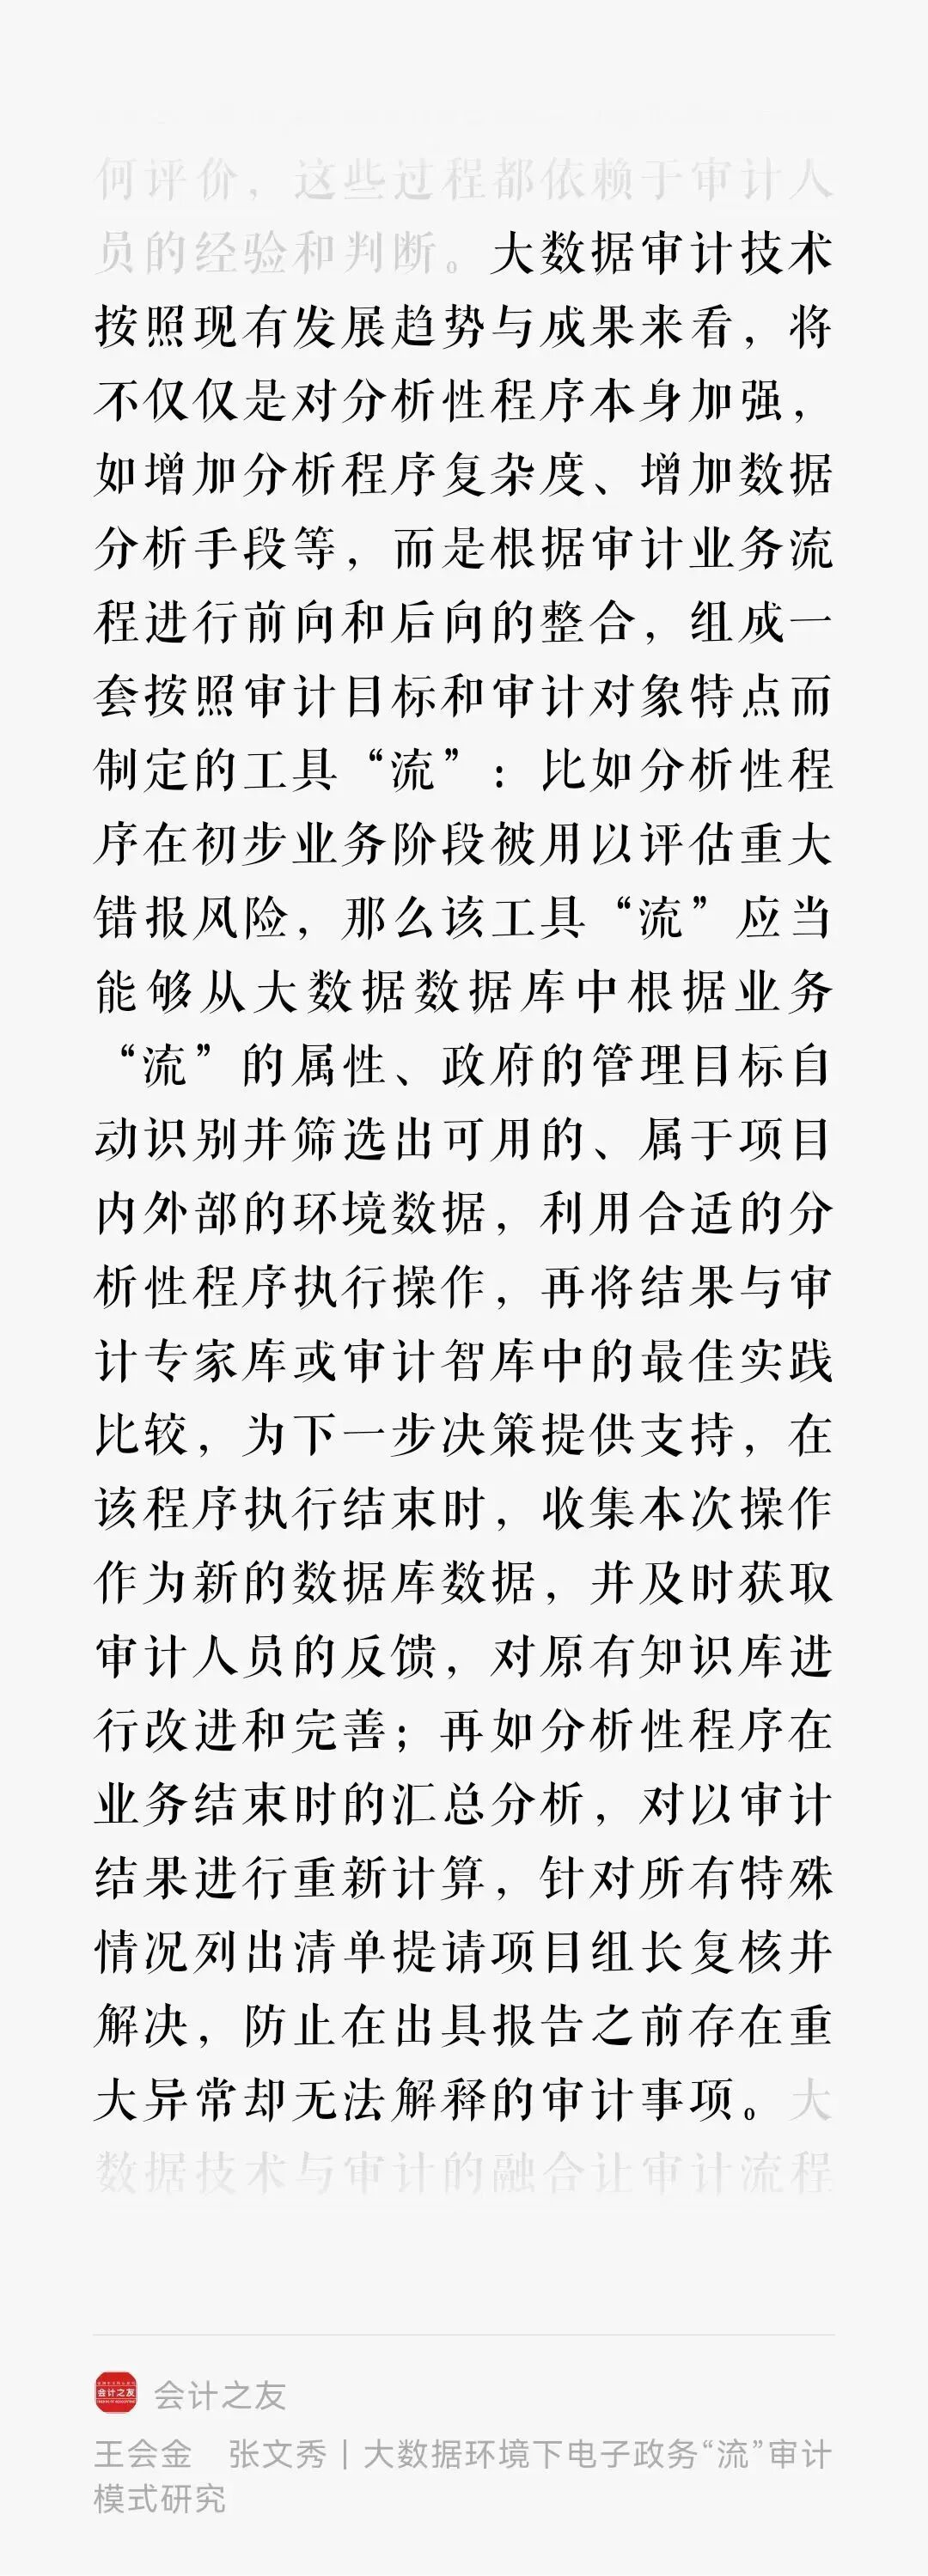 何评价，这些过程都依赖于审计人
员的经验和判断。大数据审计技术
按照现有发展趋势与成果来看，将
不仅仅是对分析性程序本身加强，
如增加分析程序复杂度、增加数据
分析手段等，而是根据审计业务流
程进行前向和后向的整合，组成一
套按照审计目标和审计对象特点而
制定的工具“流”：比如分析性程
序在初步业务阶段被用以评估重大
错报风险，那么该工具“流”应当
能够从大数据数据库中根据业务
“流”的属性、政府的管理目标自
动识别并筛选出可用的、属于项目
内外部的环境数据，利用合适的分
析性程序执行操作，再将结果与审
计专家库或审计智库中的最佳实践
比较，为下一步决策提供支持，在
该程序执行结束时，收集本次操作
作为新的数据库数据，并及时获取
审计人员的反馈，对原有知识库进
行改进和完善；再如分析性程序在
业务结束时的汇总分析，对以审计
结果进行重新计算，针对所有特殊
情况列出清单提请项目组长复核并
解决，防止在出具报告之前存在重
大异常却无法解释的审计事项。大
数据技术与审计的融合让审计流程
会计之友
会计之友
王会金　张文秀丨大数据环境下电子政务“流”审计
模式研究